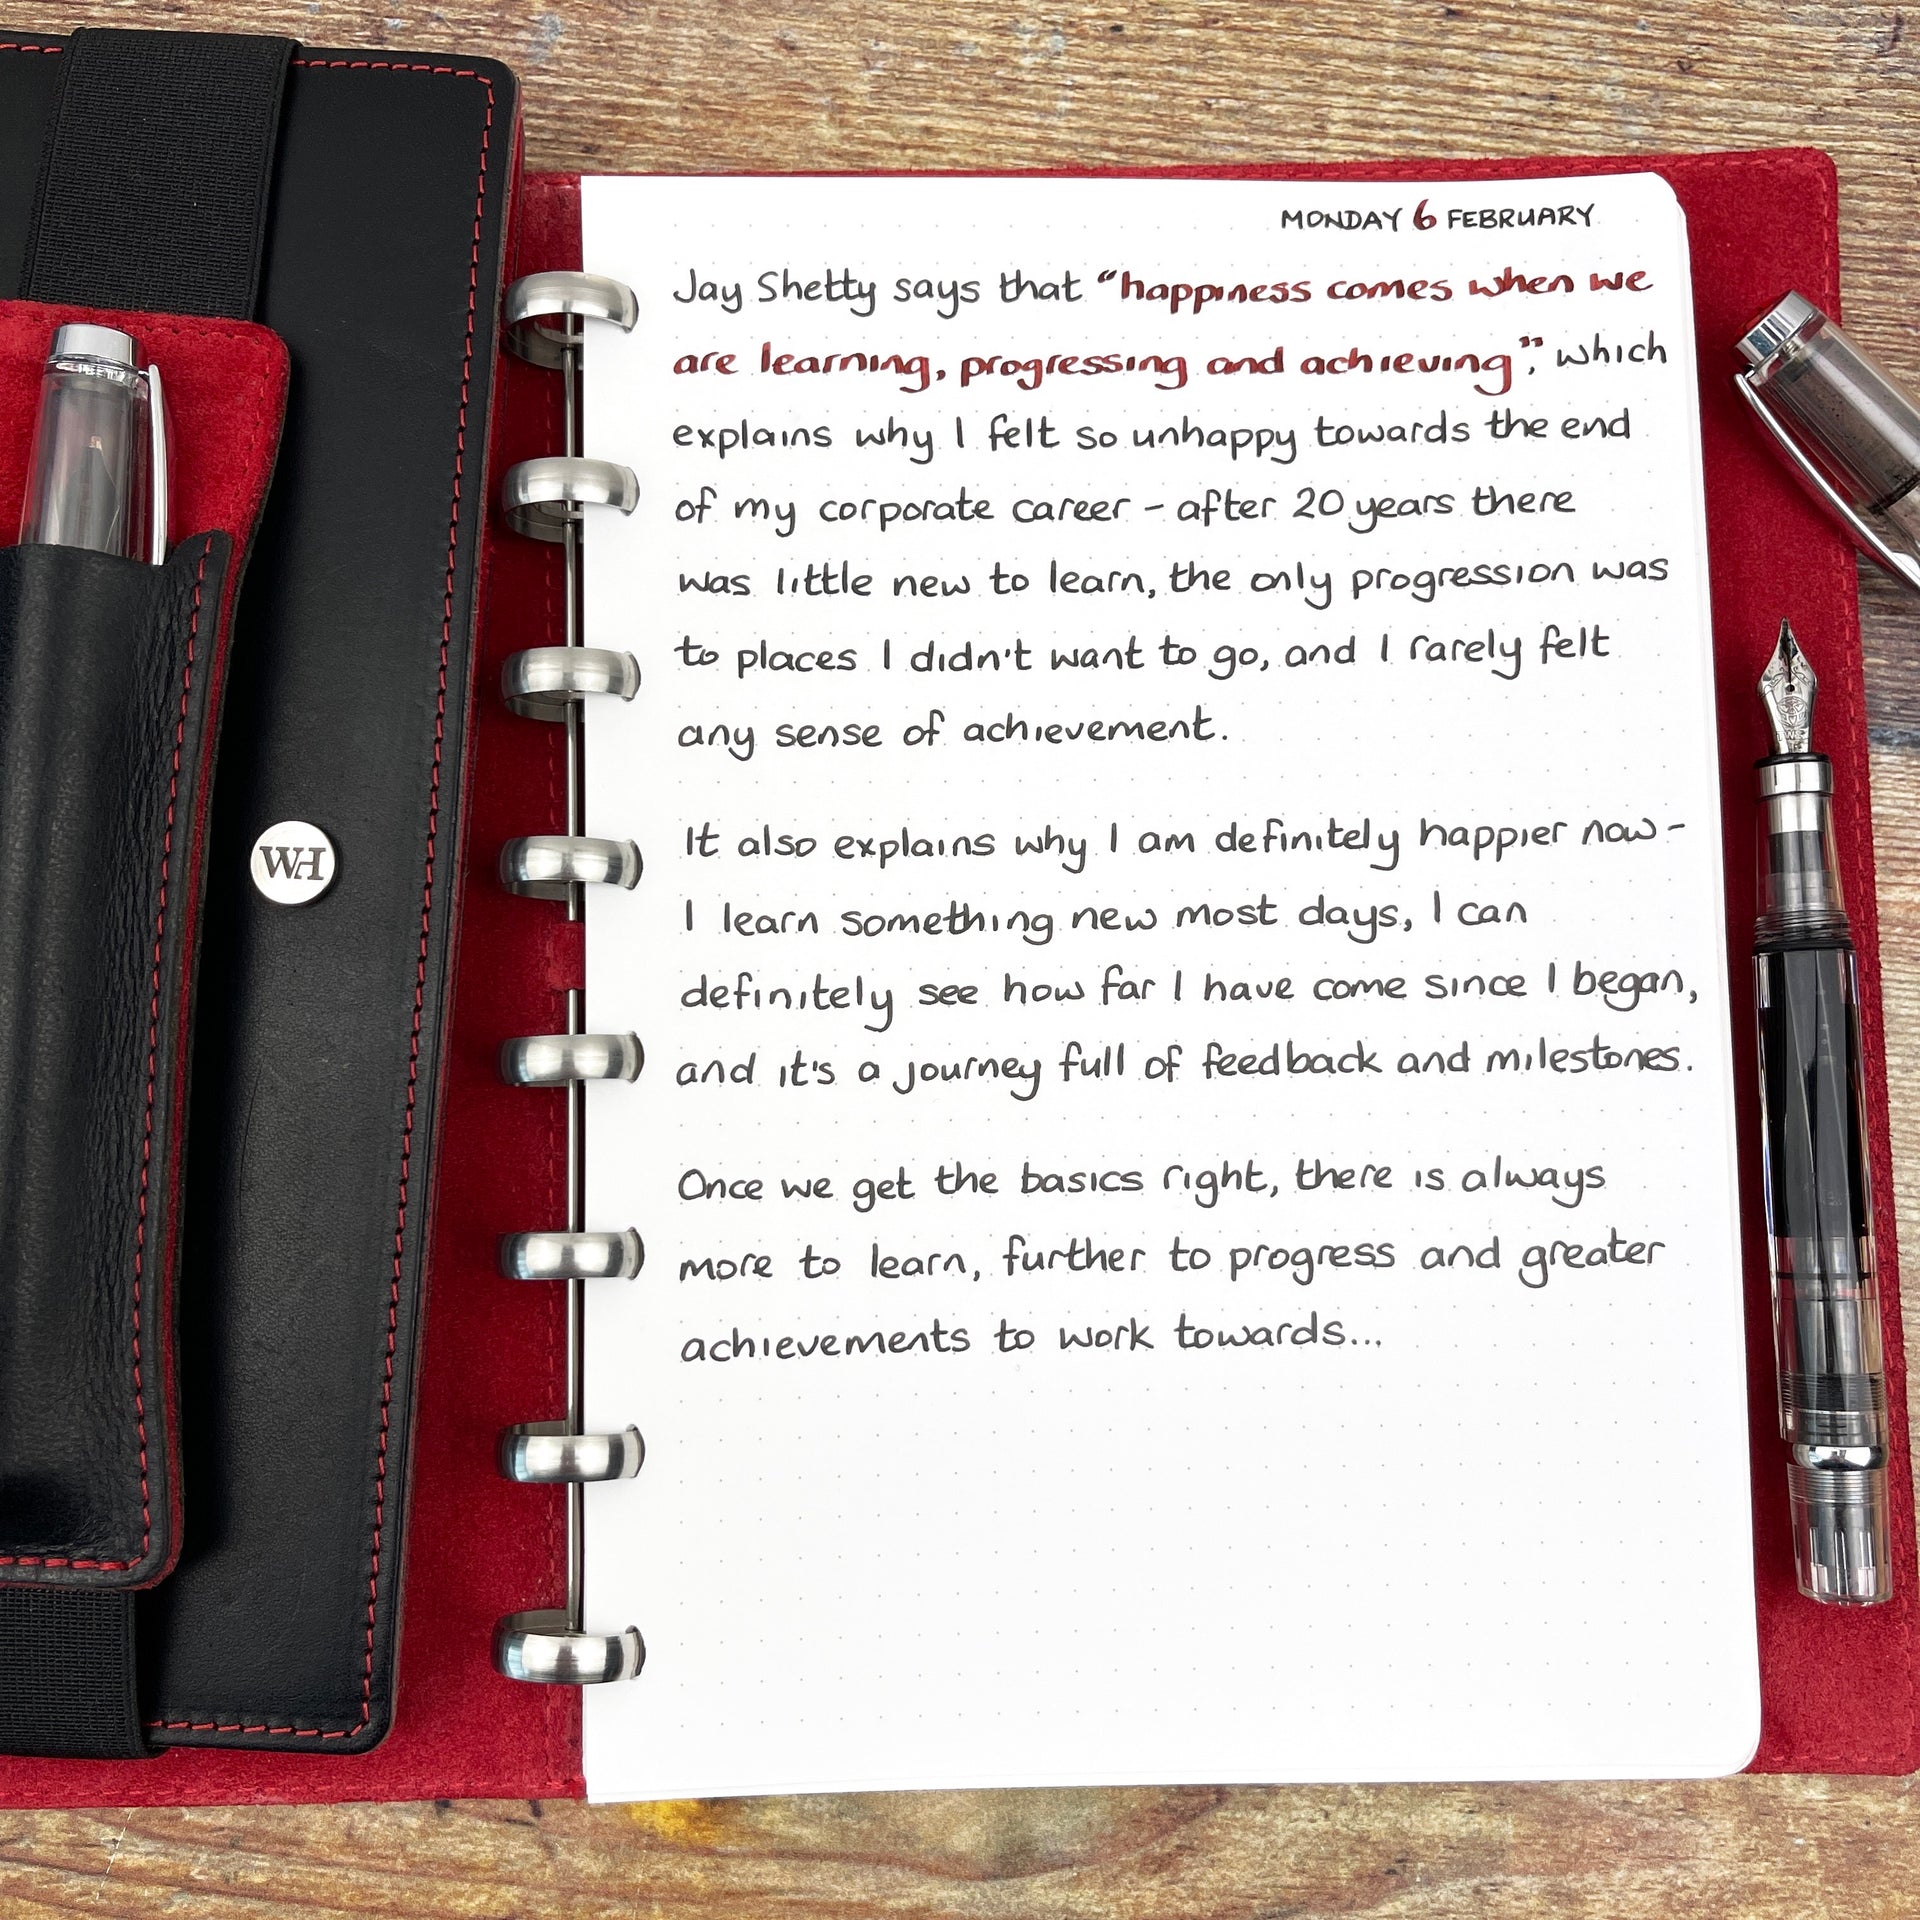 MONDAY 6 FEBRUARY
Jay Shetty says that "happiness comes when we
are learning, progressing and achieving", which
explains why I felt so unhappy towards the end
of my corporate career - after 20 years there
was little new to learn, the only progression was
to places I didn't want to go, and I rarely felt
any sense of achievement.
It also explains why I am definitely happier now -
I learn something new most days, I can
definitely see how far I have come since I began,
and it's a journey full of feedback and milestones.
Once we get the basics right, there is always
more to learn, further to progress and greater
achievements to work towards...
WH